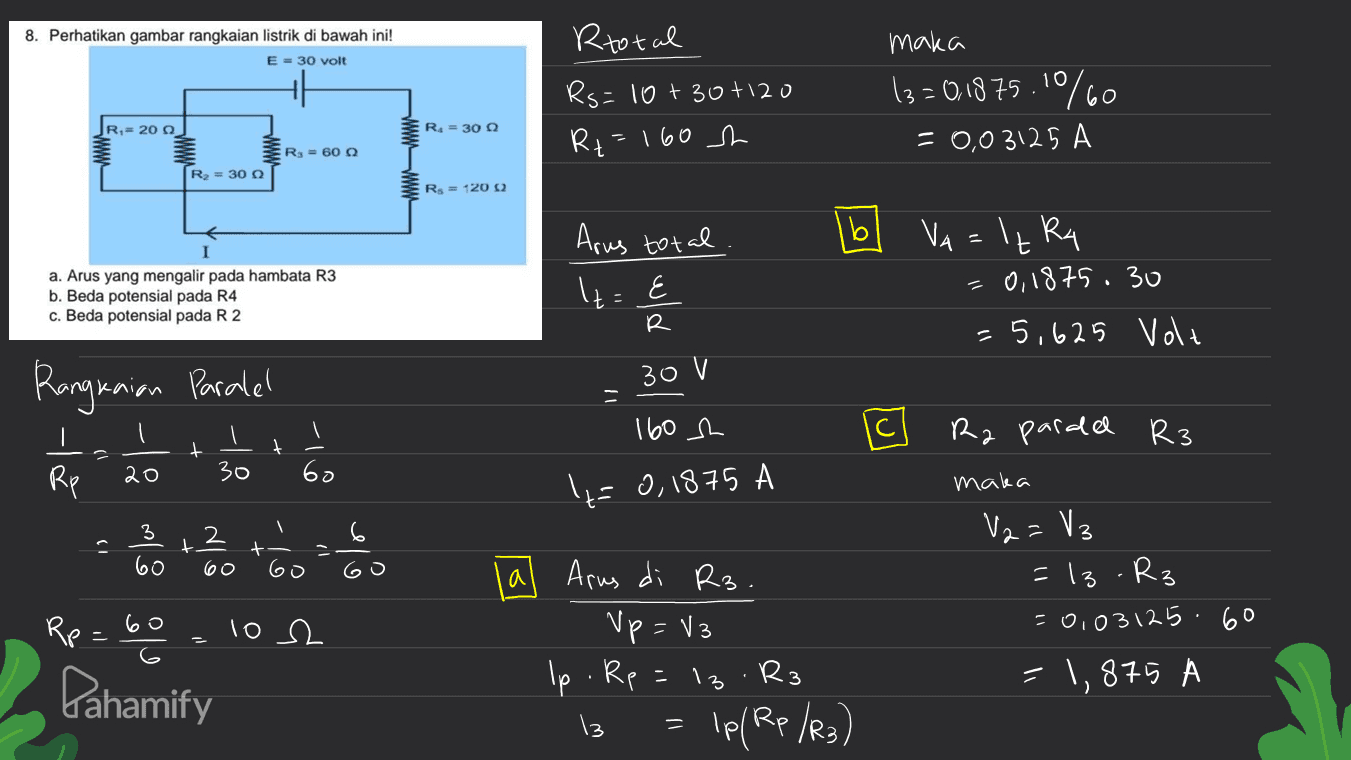 8. Perhatikan gambar rangkaian listrik di bawah ini!
E = 30 volt
R₁= 20 Ω
R₂ = 30 Ω
R₃ = 60 Ω
R₄ = 30 Ω
R₅ = 120 Ω
I
a. Arus yang mengalir pada hambata R3
b. Beda potensial pada R4
c. Beda potensial pada R 2
Rangkaian Paralel
1/Rp = 1/20 + 1/30 + 1/60
= 3/60 + 2/60 + 1/60 = 6/60
Rp = 60/6 = 10 Ω
Pahamify
Rtotal
Rs = 10 + 30 + 120
Rt = 160 Ω
Arus total.
It = ε/R
= 30 V/160 Ω
It = 0,1875 A
a Arus di R3.
Vp = V3
Ip . Rp = I3 . R3
I3 = Ip(Rp/R3)
maka
I3 = 0,1875 . 10/60
= 0,03125 A
b V4 = It R4
= 0,1875 . 30
= 5,625 Volt
c R2 paralel R3
maka
V2 = V3
= I3 . R3
= 0,03125 . 60
= 1,875 A